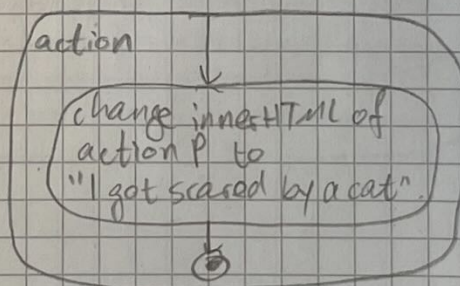 action
change innerHTML of
action P to
"I got scared by a cat".